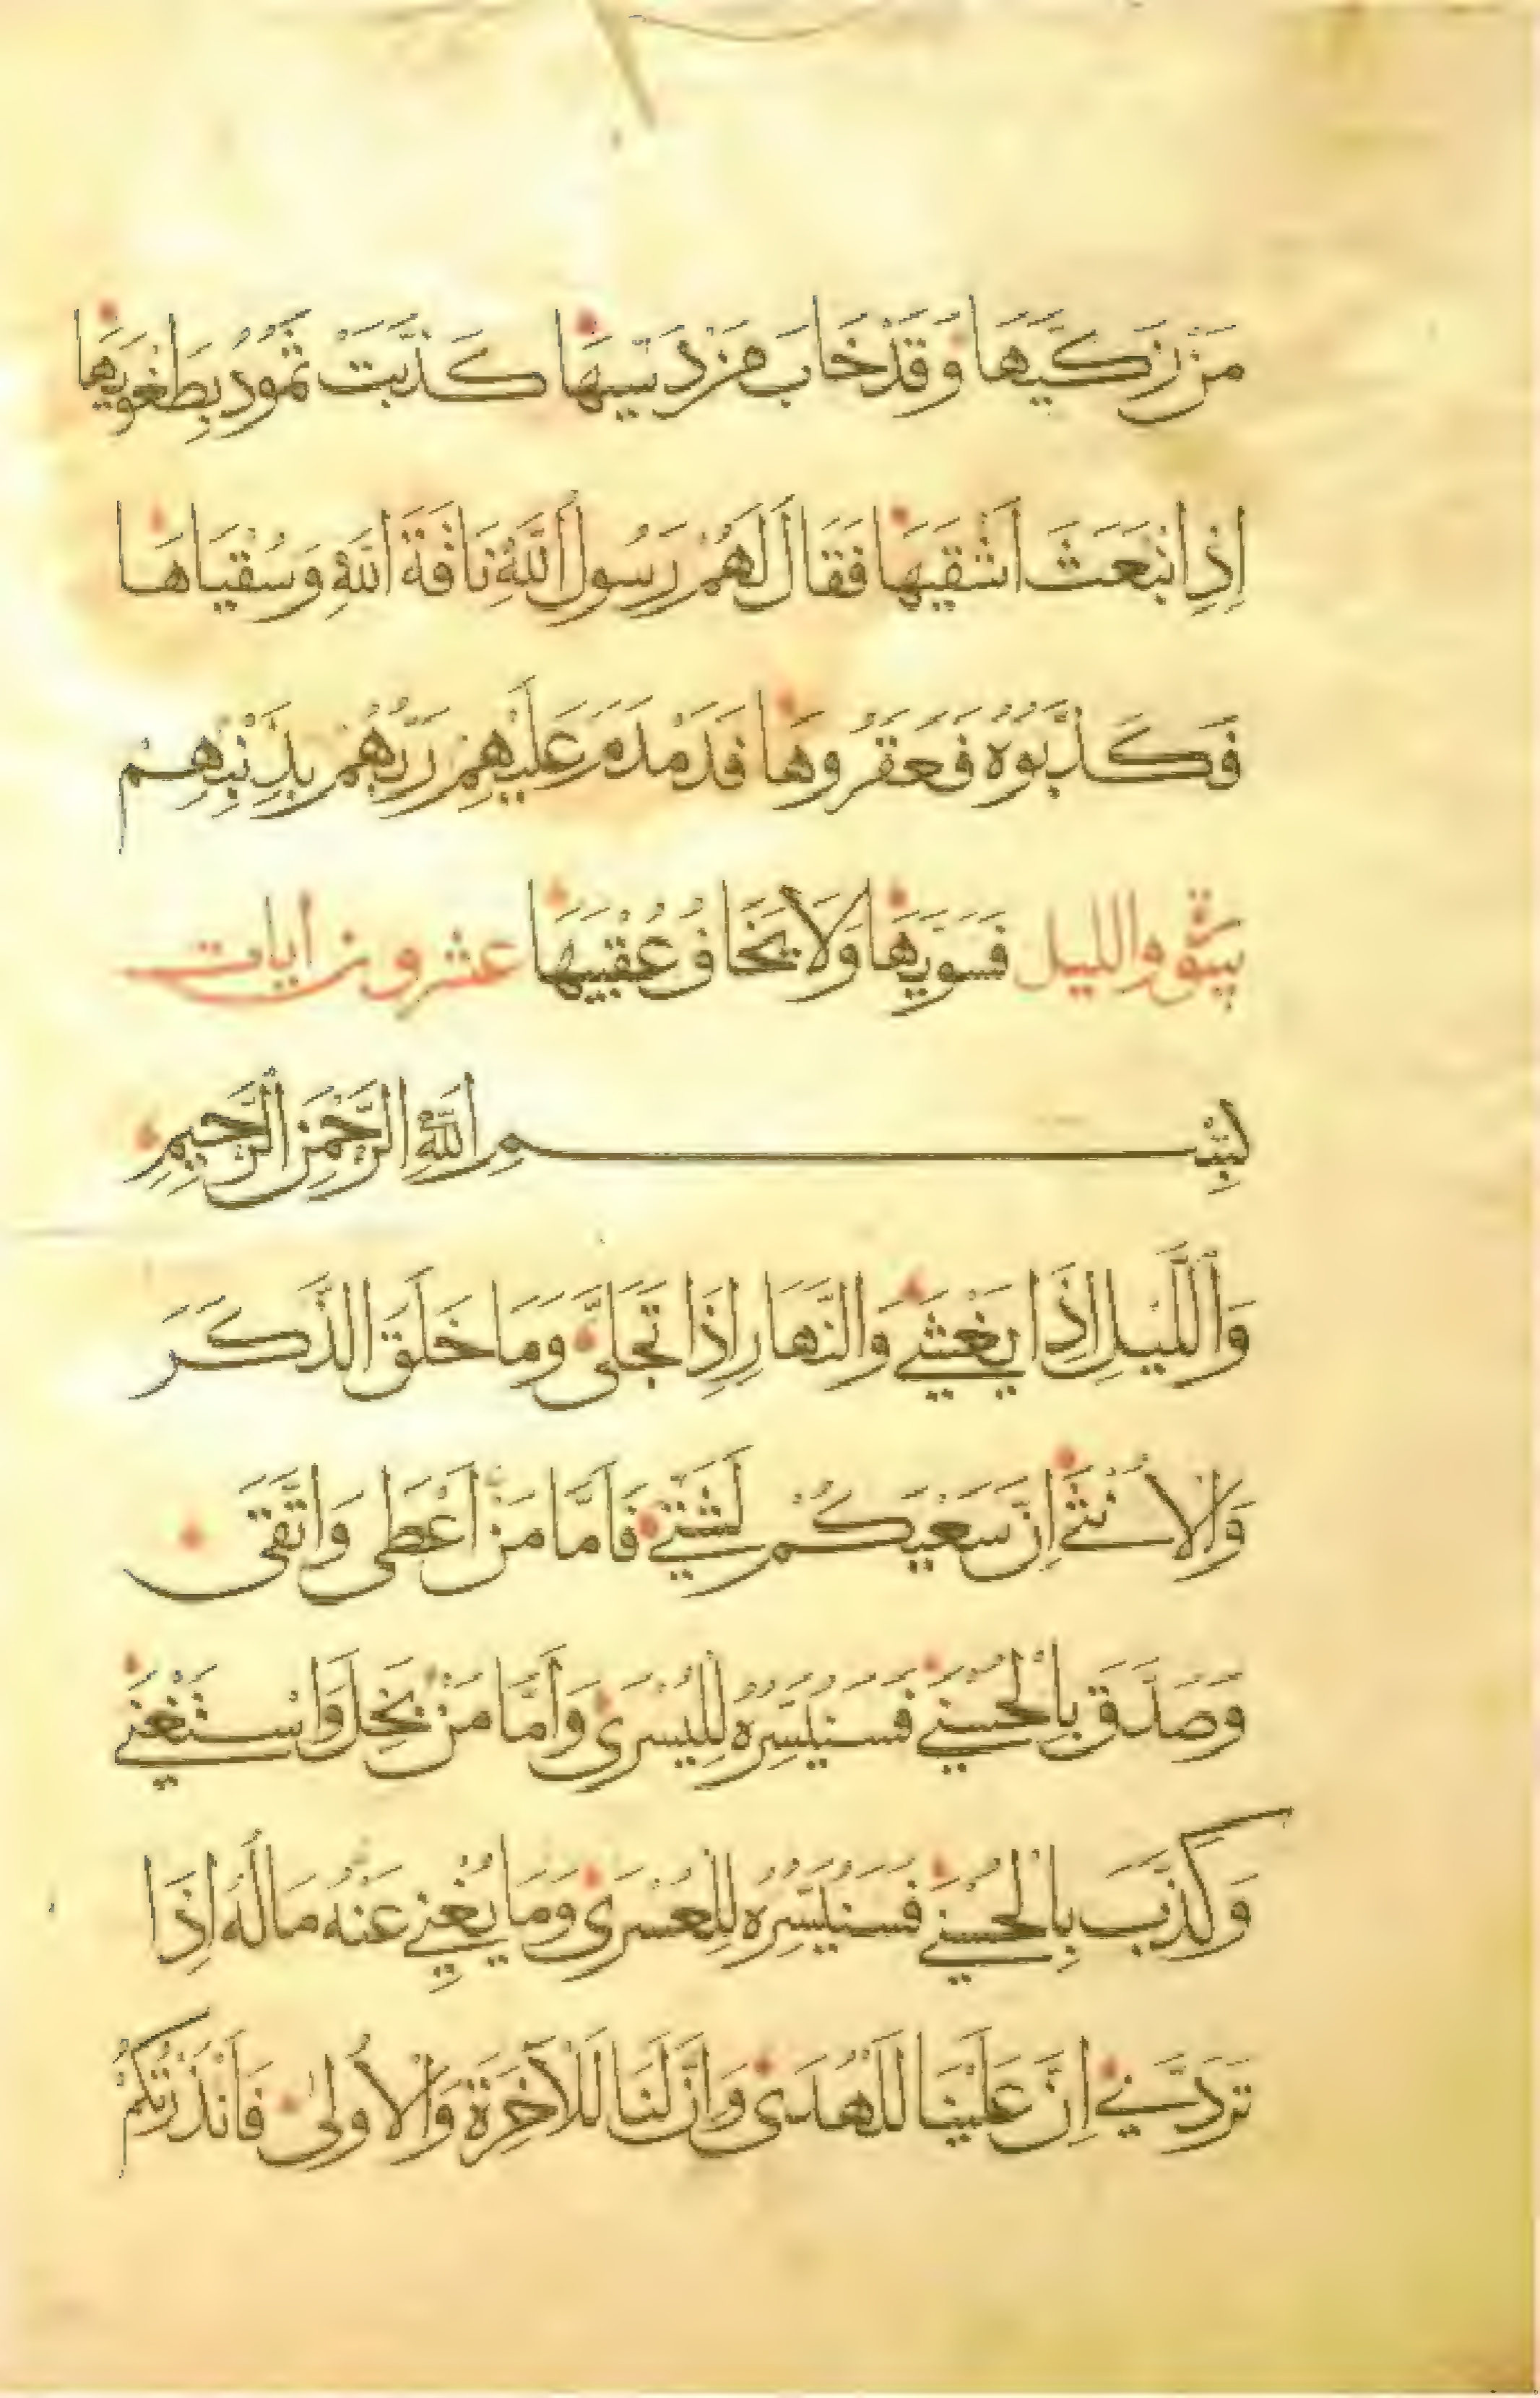 مَنْ زَكَّيٰهَا وَقَدْ خَابَ مَنْ دَسّيٰهَا كَذَّبَتْ ثَمُودُ بِطَغْوٰيهَا
اِذِ انْبَعَثَ اَشْقٰيهَا فَقَالَ لَهُمْ رَسُولُ اللّٰهِ نَاقَةَ اللّٰهِ وَسُقْيَاهَا
فَكَذَّبُوهُ فَعَقَرُوهَا فَدَمْدَمَ عَلَيْهِمْ رَبُّهُمْ بِذَنْبِهِمْ
والليل فَسَوّٰيهَا وَلَا يَخَافُ عُقْبٰيهَا عشرون ايات
بِسْمِ اللّٰهِ الرَّحْمٰنِ الرَّحِيمِ
وَاللَّيْلِ اِذَا يَغْشٰي وَالنَّهَارِ اِذَا تَجَلّٰى وَمَا خَلَقَ الذَّكَرَ
وَالْاُنْثٰي اِنَّ سَعْيَكُمْ لَشَتّٰي فَاَمَّا مَنْ اَعْطٰى وَاتَّقٰى
وَصَدَّقَ بِالْحُسْنٰي فَسَنُيَسِّرُهُ لِلْيُسْرٰي وَاَمَّا مَنْ بَخِلَ وَاسْتَغْنٰي
وَكَذَّبَ بِالْحُسْنٰي فَسَنُيَسِّرُهُ لِلْعُسْرٰي وَمَا يُغْنِي عَنْهُ مَالُهُ اِذَا
تَرَدّٰي اِنَّ عَلَيْنَا لَلْهُدٰى وَاِنَّ لَنَا لَلْاٰخِرَةَ وَالْاُولٰى فَاَنْذَرْتُكُمْ